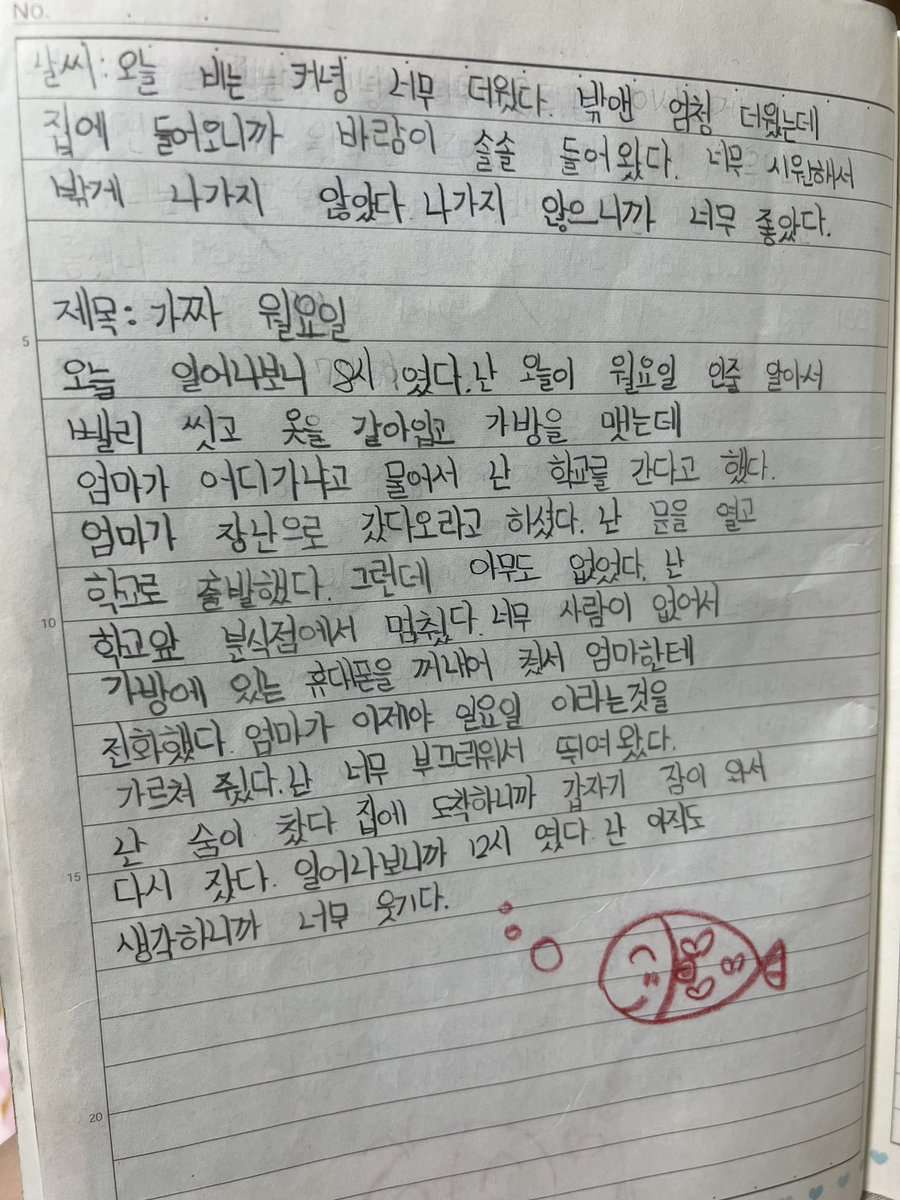 NO.
날씨: 오늘 비는 커녕 너무 더웠다. 밖앤 엄청 더웠는데
집에 들어오니까 바람이 솔솔 들어왔다. 너무 시원해서
밖게 나가지 않았다. 나가지 않으니까 너무 좋았다.
제목: 가짜 월요일
5
오늘 일어나보니 8시 였다. 난 오늘이 월요일 인줄 알아서
뺄리 씻고 옷을 갈아입고 가방을 맷는데
엄마가 어디가냐고 물어서 난 학교를 간다고 했다.
엄마가 장난으로 갔다오라고 하셨다. 난 문을 열고
학교로 출발했다. 그런데 아무도 없었다. 난
10
학교앞 분식점에서 멈췄다. 너무 사람이 없어서
가방에 있는 휴대폰을 꺼내어 켰서 엄마한테
전화했다. 엄마가 이제야 일요일 이라는것을
가르쳐 줬다. 난 너무 부끄러워서 뛰여왔다.
난 숨이 찼다 집에 도착하니까 갑자기 잠이 와서
15
다시 잤다. 일어나보니까 12시 였다. 난 아직도
생각하니까 너무 웃기다.
20